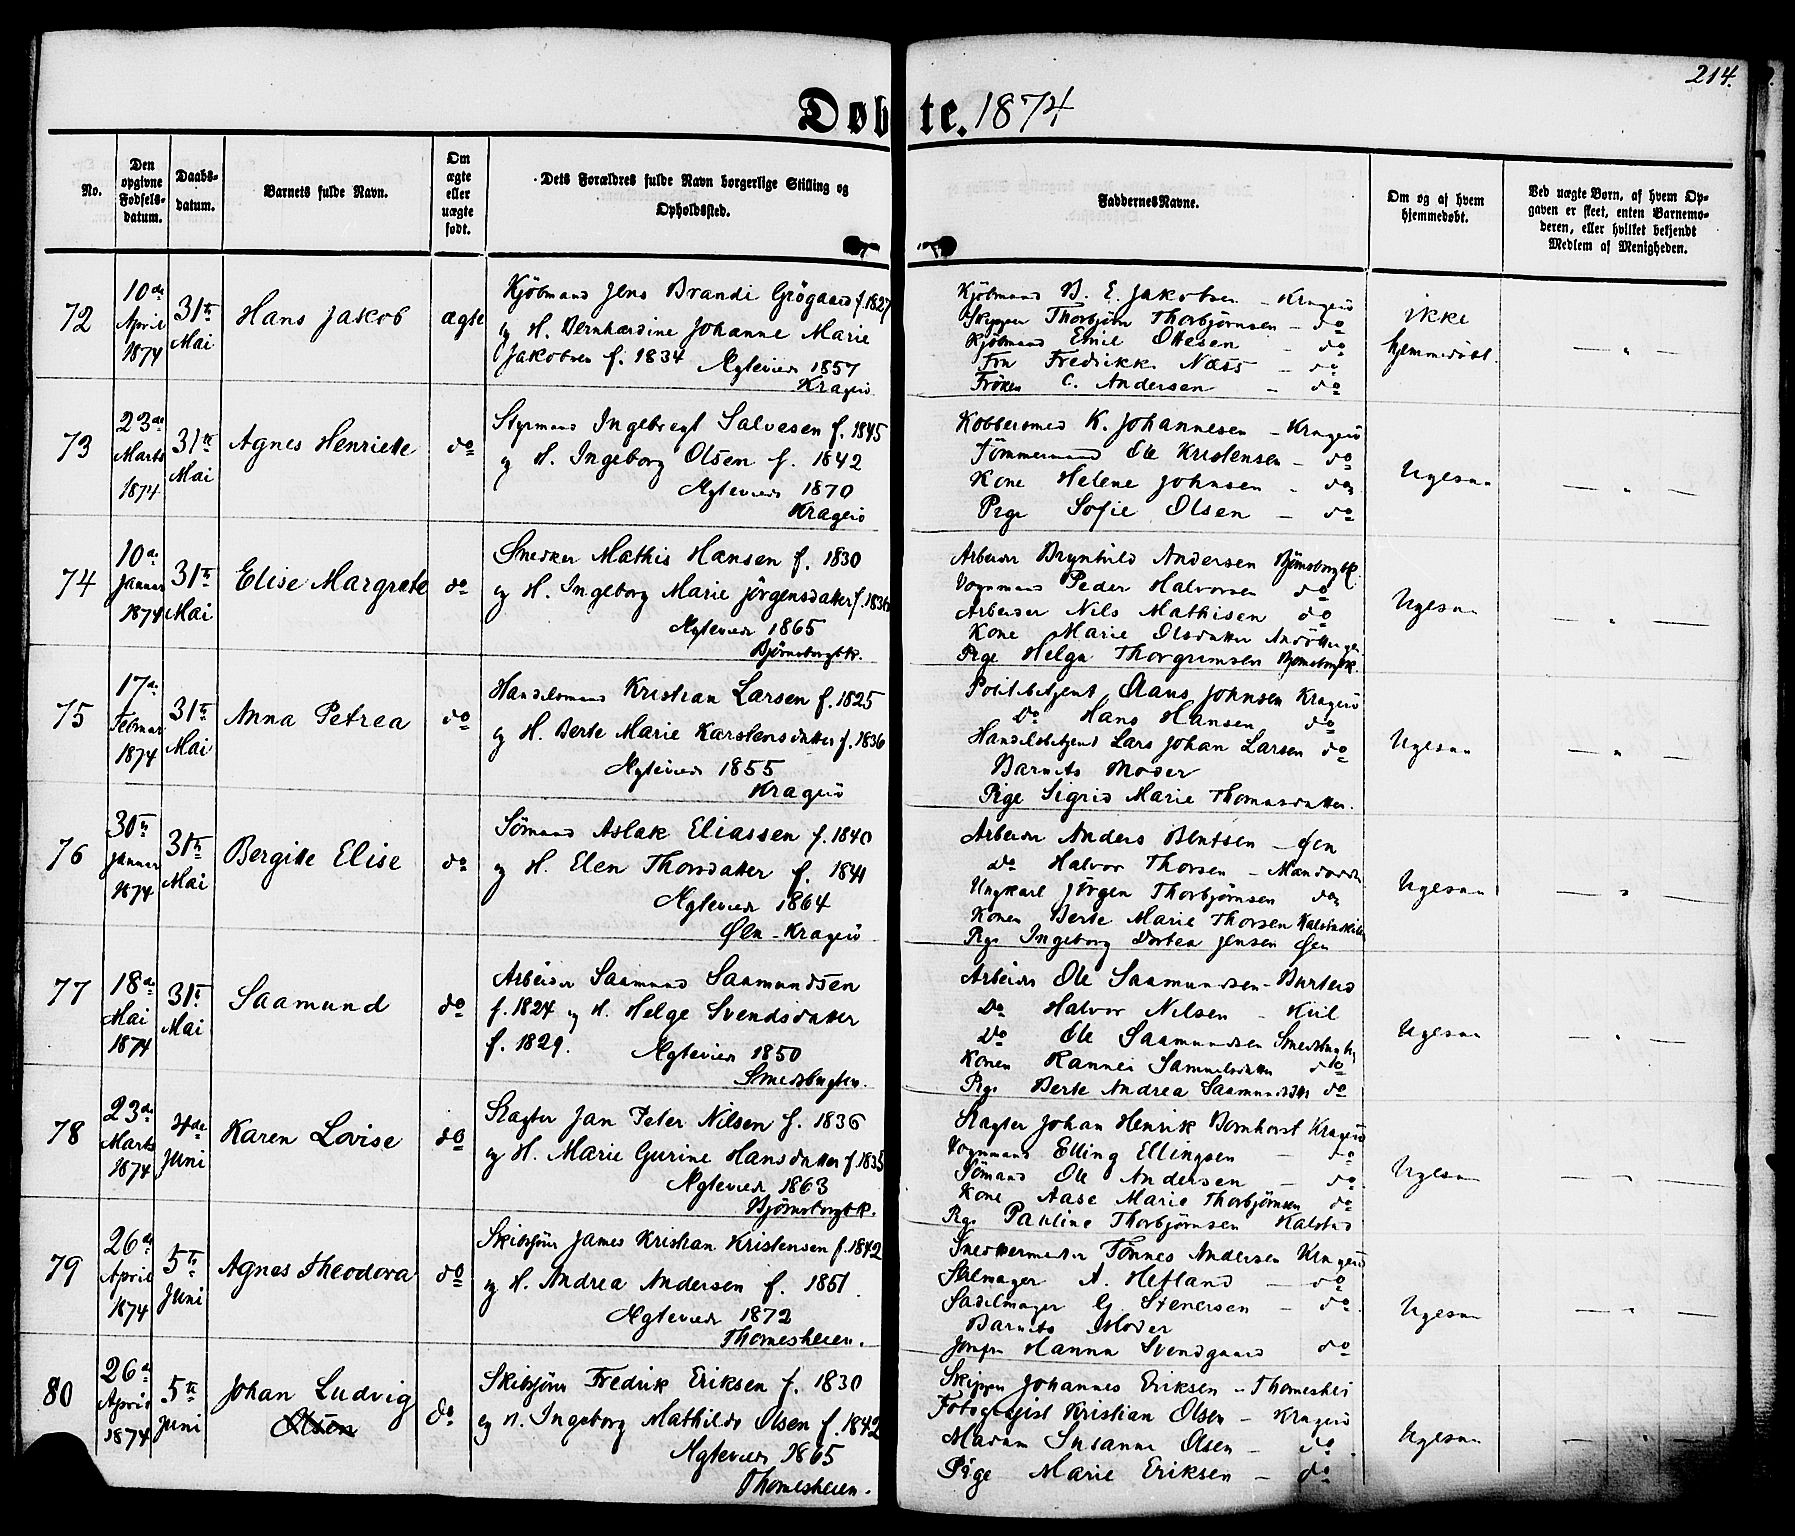 214.
Døbte. 1874
No.
Den opgivne Fødselsdatum.
Daabsdatum.
Barnets fulde Navn.
Om ægte eller uægte født.
Dets Forældres fulde Navn borgerlige Stilling og Opholdssted.
Faddernes Navne.
Om og af hvem hjemmedøbt.
Ved uægte Børn, af hvem Opgaven er skeet, enten Barnemoderen, eller hvilket bekjendt Medlem af Menigheden.
72
10de April 1874
31te Mai
Hans Jakob
ægte
Kjöbmand Jens Brandi Grögaard f. 1827
og H. Bernhardine Johanne Marie
Jakobsen f. 1834 Ægteviede 1857
Kragerö
Kjöbmand B. E. Jakobsen - Kragerö
Skipper Thorbjörn Thorbjörnsen - do
Kjöbmand Emil Ottesen - do
Fru Fredrikke Næss - do
Fröken C. Andersen - do
ikke
hjemmedöbt.
— " —
73
23de Marts 1874
31te Mai
Agnes Henriette
do
Styrmand Ingebregt Salvesen f. 1845
og H. Ingeborg Olsen f. 1842
Ægteviede 1870
Kragerö
Kobbersmed K. Johannesen - Kragerö
Tömmermand Ole Kristensen - do
Kone Helene Johnsen - do
Pige Sofie Olsen - do
Ligesaa
— " —
74
10de Januar 1874
31te Mai
Elise Margrete
do
Snedker Mathis Hansen f. 1830
og H. Ingeborg Marie Jörgensdatter f. 1836
Ægteviede 1865
Bjørnsborgbk.
Arbeider Brynhild Andersen Bjørnsborgbk.
Vognmand Peder Halvorsen do
Arbeider Nils Mathisen do
Kone Marie Olsdatter
Pige Helga Thorgrimsen Bjørnsborgbk.
Ligesaa
— " —
75
17de Februar 1874
31te Mai
Anna Petrea
do
Handelsmand Kristian Larsen f. 1825
og H. Berte Marie Karstensdatter f. 1836
Ægteviede 1855
Kragerö
Politibetjent Claus Johnsen Kragerö
Do Hans Hansen do
Handelsbetjent Lars Johan Larsen do
Barnets Moder
Pige Sigrid Marie Thomasdatter.
Ligesaa
— " —
76
30te Januar 1874
31te Mai
Bergitte Elise
do
Sömand Aslak Eliassen f. 1840
og H. Elen Thorsdatter f. 1841
Ægteviede 1864
Øen - Kragerö
Arbeider Anders Bentsen - Øen
do Halvor Thorsen -
Ungkarl Jørgen Thorbjørnsen do
Konen Berte Marie Thorsen
Pige Ingeborg Dortea Jensen Øen
Ligesaa
— " —
77
18de Mai 1874
31te Mai
Saamund
do
Arbeider Saamund Saamundsen
f. 1824 og H. Helge Svendsdatter
f. 1829. Ægteviede 1850
Smedsbugten.
Arbeider Ole Saamundsen -
Do Halvor Nilsen - Kiil
Do Ole Saamundsen Smedsbugten
Konen Rannei Samuelsdatter do
Pige Berte Andrea Saamundsdtr do
Ligesaa
— " —
78
23de Marts 1874
4de Juni
Karen Lovise
do
Slagter Jan Peter Nilsen f. 1836
og H. Marie Gurine Hansdatter f. 1835
Ægteviede 1863
Bjørnsborgbk.
Slagter Johan Henrik Bornhorst Kragerö
Vognmand Elling Ellingsen - do
Sömand Ole Andersen - do
Kone Aase Marie Thorbjørnsen do
Pige Pauline Thorbjørnsen Kalstad
Ligesaa
— " —
79
26de April 1874
5te Juni
Agnes Theodora
do
Skibsfører James Kristian Kristensen f. 1842
og H. Andrea Andersen f. 1851.
Ægteviede 1872
Thomesheien.
Snedkermester Tönnes Andersen Kragerö
Seilmager A. Hefland - do
Sadelmager G. Stenersen - do
Barnets Moder
Jomfru Hanna Svendgaard do
Ligesaa
— " —
80
26de April 1874
5te Juni
Johan Ludvig
Olsen
do
Skibsfører Fredrik Eriksen f. 1830
og H. Ingeborg Mathilde Olsen f. 1842
Ægteviede 1865
Thomesheien.
Skipper Johannes Eriksen - Thomeshei
Fotografist Kristian Olsen - Kragerö
Madam Susanne Olsen - do
Pige Marie Eriksen - do
Ligesaa
— " —